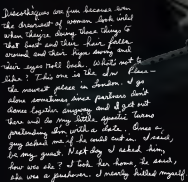 Discotheques are fun because even
the dreariest of women look wild
when they're doing those things to
that beat and their hair falls
around and their hips move and
their eyes roll back. What's not to
like? This one is the In place —
the newest place in London. I go
alone sometimes since partners don't
dance together anyway and I get out
there and do my little specific turns
pretending I'm with a date. Once a
guy asked me if he could cut in. I said,
be my guest. Next day I asked him,
how was she? I took her home, he said,
she was a pushover. I nearly killed myself